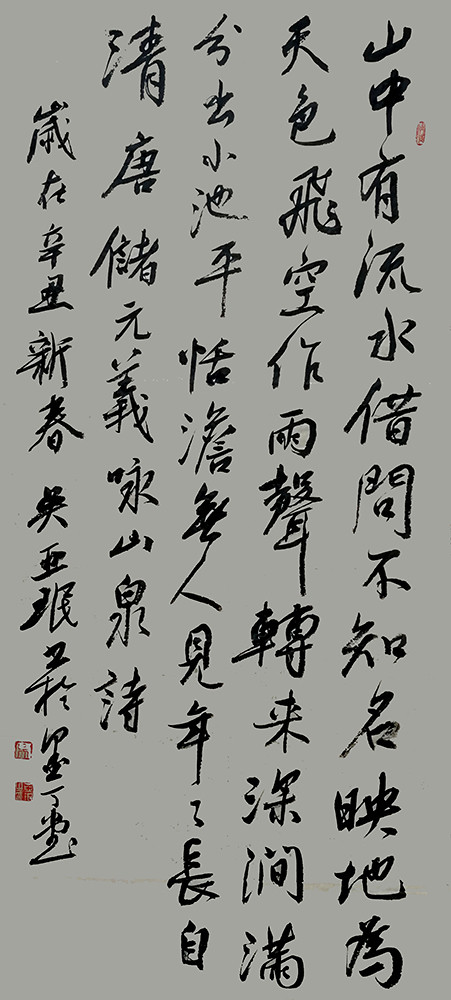 山中有流水借問不知名映地為
天色飛空作雨聲轉来深澗滿
分出小池平恬澹無人見年々長自
清唐儲元義咏山泉詩
歲在辛丑新春吴亚珉书於墨丁堂